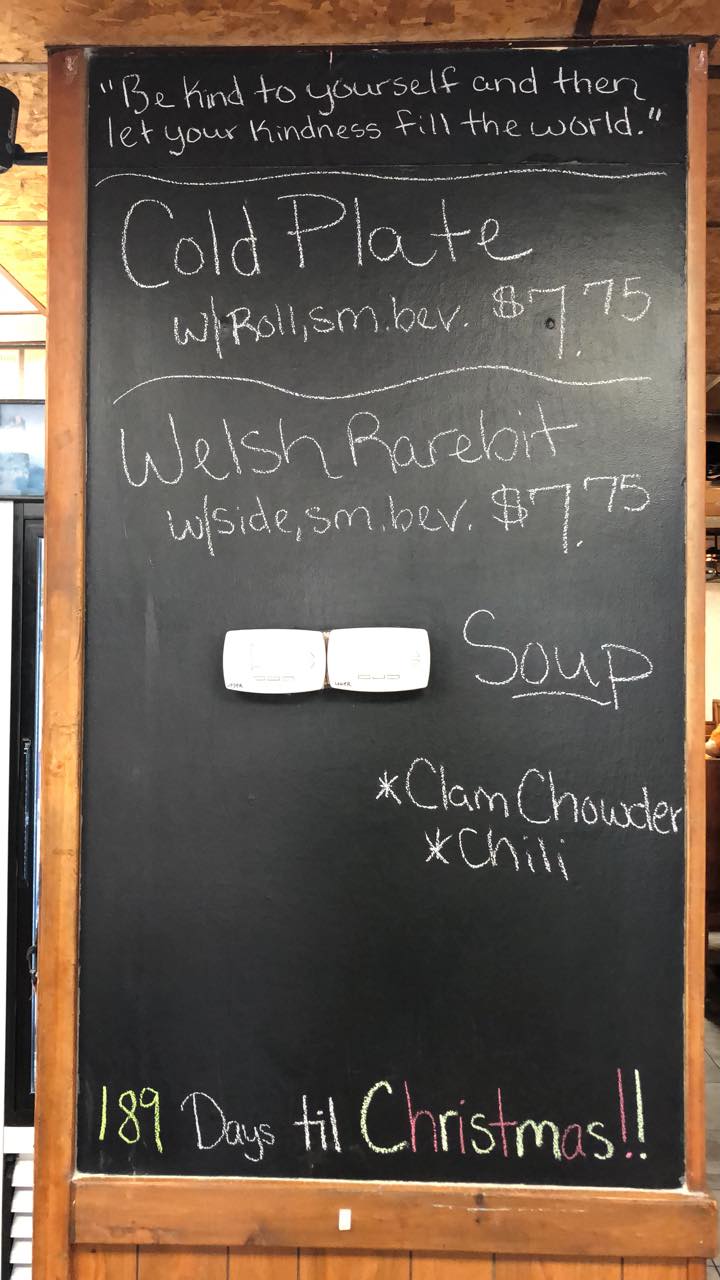 "Be Kind to yourself and then
let your Kindness fill the world."
Cold Plate
w/Roll, sm. bev. $7.75
Welsh Rarebit
w/side, sm. bev. $7.75
Soup
*Clam Chowder
*Chili
189 Days til Christmas!!